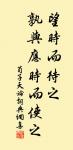 望時而待之
孰與應時而使之
荀子天論詞典佩集